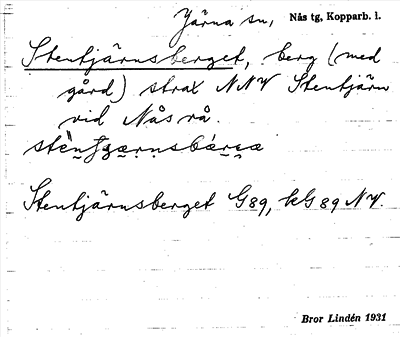 Järna sn, Nås tg, Kopparb. l.
Stentjärnsberget, berg (med
gård) strax NNV Stentjärn
vid Nås rå.
Stentjärnsberget G89, kG89 NV.
Bror Lindén 1931